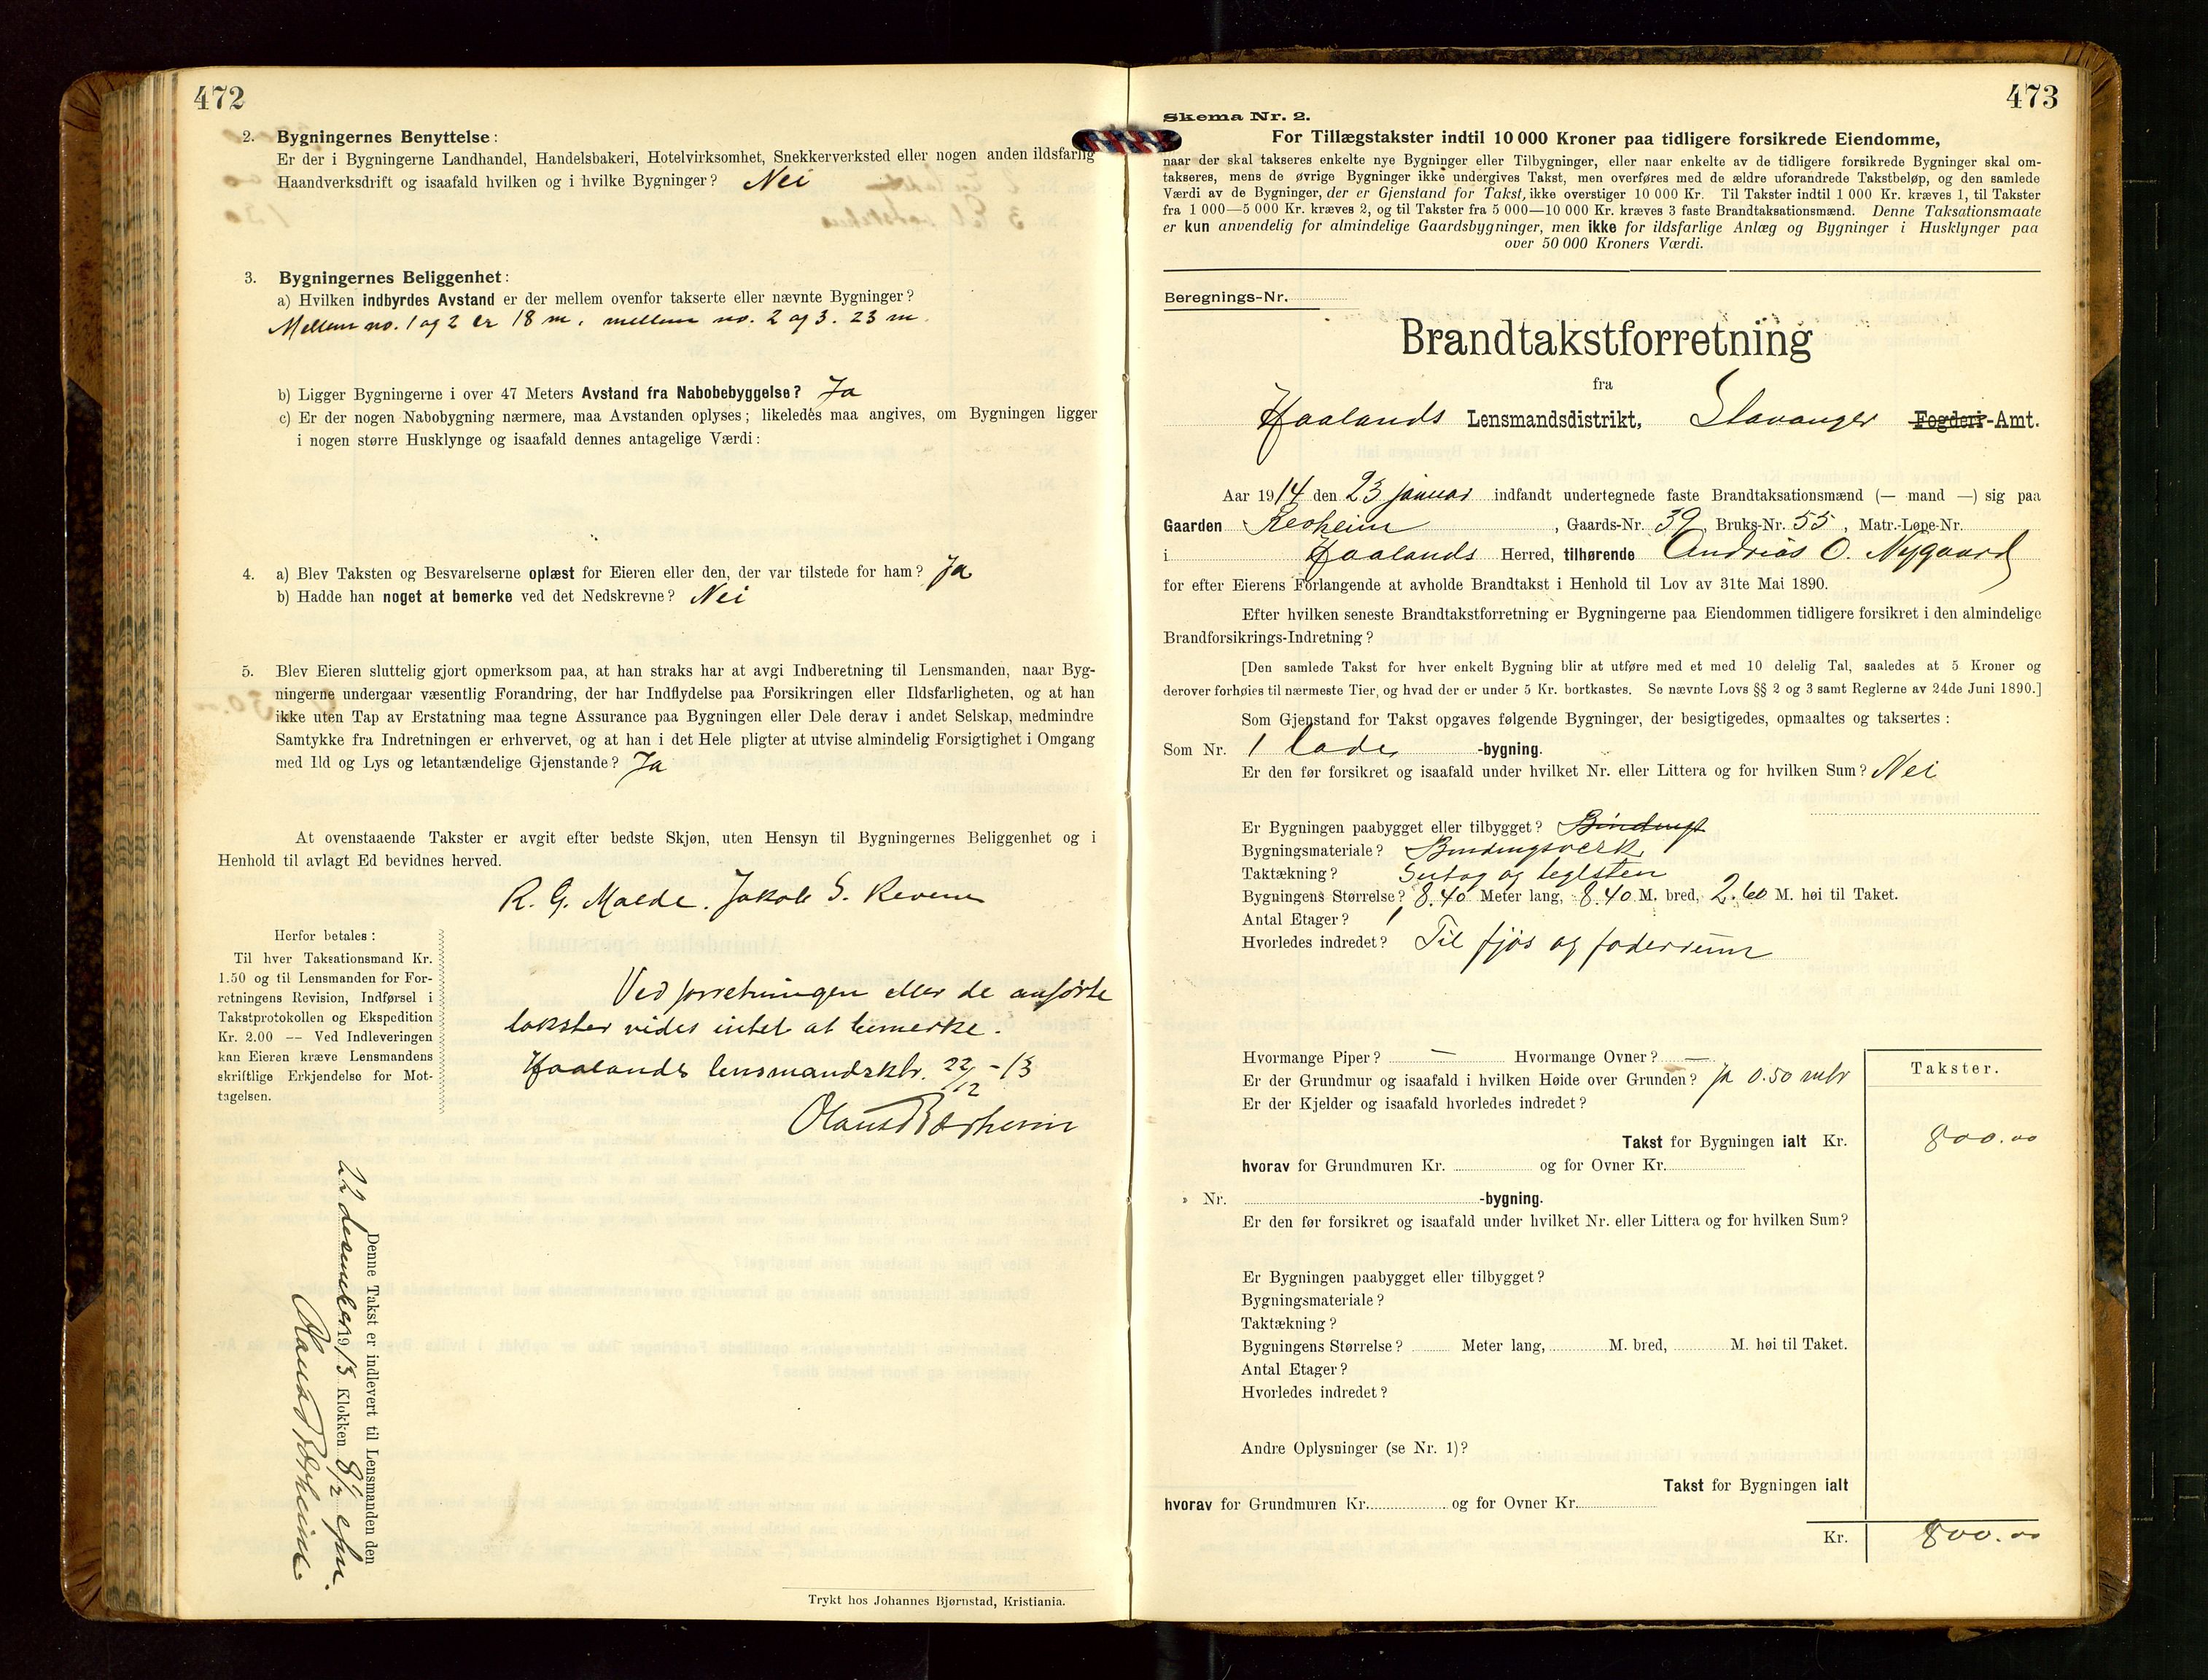 472
2. Bygningernes Benyttelse:
Er der i Bygningerne Landhandel, Handelsbakeri, Hotelvirksomhet, Snekkerverksted eller nogen anden ildsfarlig
Haandverksdrift og isaafald hvilken og i hvilke Bygninger? Nei
3. Bygningernes Beliggenhet:
a) Hvilken indbyrdes Avstand er der mellem ovenfor takserte eller nævnte Bygninger?
Mellem no. 1 og 2 er 18 m, mellem no. 2 og 3. 23 m.
b) Ligger Bygningerne i over 47 Meters Avstand fra Nabobebyggelse? Ja
c) Er der nogen Nabobygning nærmere, maa Avstanden oplyses; likeledes maa angives, om Bygningen ligger
i nogen større Husklynge og isaafald dennes antagelige Værdi:
4. a) Blev Taksten og Besvarelserne oplæst for Eieren eller den, der var tilstede for ham? Ja
b) Hadde han noget at bemerke ved det Nedskrevne? Nei
5. Blev Eieren sluttelig gjort opmerksom paa, at han straks har at avgi Indberetning til Lensmanden, naar Byg-
ningerne undergaar væsentlig Forandring, der har Indflydelse paa Forsikringen eller Ildsfarligheten, og at han
ikke uten Tap av Erstatning maa tegne Assurance paa Bygningen eller Dele derav i andet Selskap, medmindre
Samtykke fra Indretningen er erhvervet, og at han i det Hele pligter at utvise almindelig Forsigtighet i Omgang
med Ild og Lys og letantændelige Gjenstande? Ja
At ovenstaaende Takster er avgit efter bedste Skjøn, uten Hensyn til Bygningernes Beliggenhet og i
Henhold til avlagt Ed bevidnes herved.
R. G. Malde. Jakob S. Revem
Herfor betales:
Til hver Taksationsmand Kr.
1.50 og til Lensmanden for For-
retningens Revision, Indførsel i
Takstprotokollen og Ekspedition
Kr. 2.00 — Ved Indleveringen
kan Eieren kræve Lensmandens
skriftlige Erkjendelse for Mot-
tagelsen.
Ved forretningen eller de anførte
takster vides intet at bemerke.
Haalands lensmandsktr. 22/12 -13
Olaus Bærheim
Denne Takst er indlevert til Lensmanden den
22 desember 1913 Klokken 8 1/2 efm.
Olaus Bærheim.
Trykt hos Johannes Bjørnstad, Kristiania.
473
Skema Nr. 2.
For Tillægstakster indtil 10 000 Kroner paa tidligere forsikrede Eiendomme,
naar der skal takseres enkelte nye Bygninger eller Tilbygninger, eller naar enkelte av de tidligere forsikrede Bygninger skal om-
takseres, mens de øvrige Bygninger ikke undergives Takst, men overføres med de ældre uforandrede Takstbeløp, og den samlede
Værdi av de Bygninger, der er Gjenstand for Takst, ikke overstiger 10 000 Kr. Til Takster indtil 1 000 Kr. kræves 1, til Takster
fra 1 000—5 000 Kr. kræves 2, og til Takster fra 5 000—10 000 Kr. kræves 3 faste Brandtaksationsmænd. Denne Taksationsmaate
er kun anvendelig for almindelige Gaardsbygninger, men ikke for ildsfarlige Anlæg og Bygninger i Husklynger paa
over 50 000 Kroners Værdi.
Beregnings-Nr.
Brandtakstforretning
fra
Haalands Lensmandsdistrikt, Stavanger Fogderi-Amt.
Aar 1914 den 23 januar indfandt undertegnede faste Brandtaksationsmænd (— mand —) sig paa
Gaarden Revheim, Gaards-Nr. 39, Bruks-Nr. 55, Matr.-Løpe-Nr.
i Haalands Herred, tilhørende Andreas O. Nygaard
for efter Eierens Forlangende at avholde Brandtakst i Henhold til Lov av 31te Mai 1890.
Efter hvilken seneste Brandtakstforretning er Bygningerne paa Eiendommen tidligere forsikret i den almindelige
Brandforsikrings-Indretning?
[Den samlede Takst for hver enkelt Bygning blir at utføre med et med 10 delelig Tal, saaledes at 5 Kroner og
derover forhøies til nærmeste Tier, og hvad der er under 5 Kr. bortkastes. Se nævnte Lovs §§ 2 og 3 samt Reglerne av 24de Juni 1890.]
Som Gjenstand for Takst opgaves følgende Bygninger, der besigtigedes, opmaaltes og taksertes:
Som Nr. 1 lade -bygning.
Er den før forsikret og isaafald under hvilket Nr. eller Littera og for hvilken Sum? Nei
Er Bygningen paabygget eller tilbygget?
Bygningsmateriale? Bindingsverk
Taktækning? Sutag og teglsten
Bygningens Størrelse? 8.40 Meter lang, 8.40 M. bred, 2.60 M. høi til Taket.
Antal Etager? 1
Hvorledes indredet? Til fjøs og foderrum
Hvormange Piper? — Hvormange Ovner? —
Er der Grundmur og isaafald i hvilken Høide over Grunden? Ja 0.50 mtr
Er der Kjelder og isaafald hvorledes indredet?
Takster.
Takst for Bygningen ialt Kr. 800.00
hvorav for Grundmuren Kr. og for Ovner Kr.
Nr. -bygning.
Er den før forsikret og isaafald under hvilket Nr. eller Littera og for hvilken Sum?
Er Bygningen paabygget eller tilbygget?
Bygningsmateriale?
Taktækning?
Bygningens Størrelse? Meter lang, M. bred, M. høi til Taket.
Antal Etager?
Hvorledes indredet?
Andre Oplysninger (se Nr. 1)?
Takst for Bygningen ialt
hvorav for Grundmuren Kr. og for Ovner Kr.
Kr. 800.00